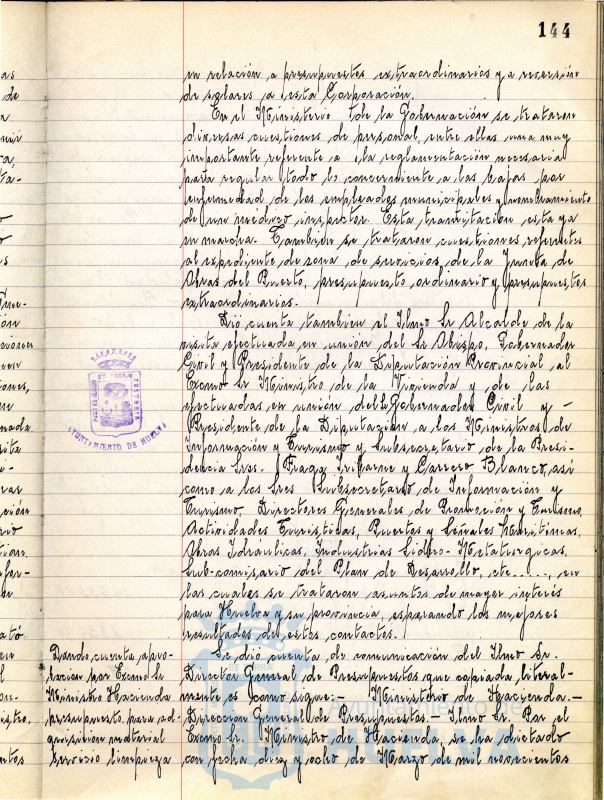 144
en relación a presupuestos extraordinarios y a recersión
de solares a esta Corporación.
En el Ministerio de la Gobernación se trataron
diversas cuestiones de personal, entre ellas una muy
importante referente a la reglamentación necesaria
para regular todo lo concerniente a las bajas por
enfermedad de los empleados municipales y nombramiento
de un medico inspector. Esta tramitación esta ya
en marcha. Tambien se trataron cuestiones referentes
al expediente de zona de servicios de la Junta de
Obras del Puerto, presupuesto ordinario y presupuestos
extraordinarios.
Dió cuenta tambien el Ilmo Sr Alcalde de la
visita efectuada en unión del Sr Obispo, Gobernador
Civil y Presidente de la Diputación Provincial al
Excmo Sr Ministro de la Vivienda y de las
efectuadas en unión del Gobernador Civil y —
Presidente de la Diputación a los Ministros de
Información y Turismo y Subsecretario de la Presi-
dencia Srs. Fraga Iribarne y Carrero Blanco, así
como a los Sres Subsecretario de Información y
Turismo, Directores Generales de Promoción y Turismo,
Actividades Turisticas, Puertos y Señales Maritimas,
Obras Idraulicas, Industrias Sidero-Metalurgicas,
Sub-comisario del Plan de Desarrollo, etc...., en
las cuales se trataron asuntos de mayor interés
para Huelva y su provincia, esperando los mejores
resultados de estos contactos.
Se dió cuenta de comunicación del Ilmo Sr.
Director General de Presupuestos que copiada literal-
mente es como sigue:- Ministerio de Hacienda.—
Dirección General de Presupuestos.— Ilmo Sr. Por el
Excmo Sr. Ministro de Hacienda, se ha dictado
con fecha diez y ocho de Marzo de mil novecientos
Dando cuenta apro-
bacion por Excmo Sr
Ministro Hacienda
presupuesto para ad-
quisición material
Servicio limpieza
AYUNTAMIENTO DE HUELVA
Ayuntamiento de
HUELVA